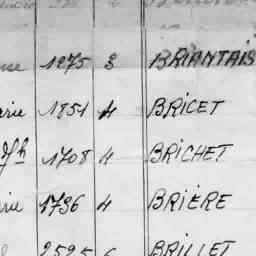 1275 3 BRIANTAIS
1851 4 BRICET
1708 4 BRICHET
1796 4 BRIÈRE
2585 BRILLET